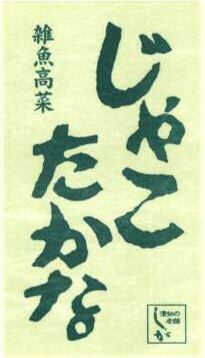 じゃこ
たかな
雑魚高菜
漬物の
老舗
しが